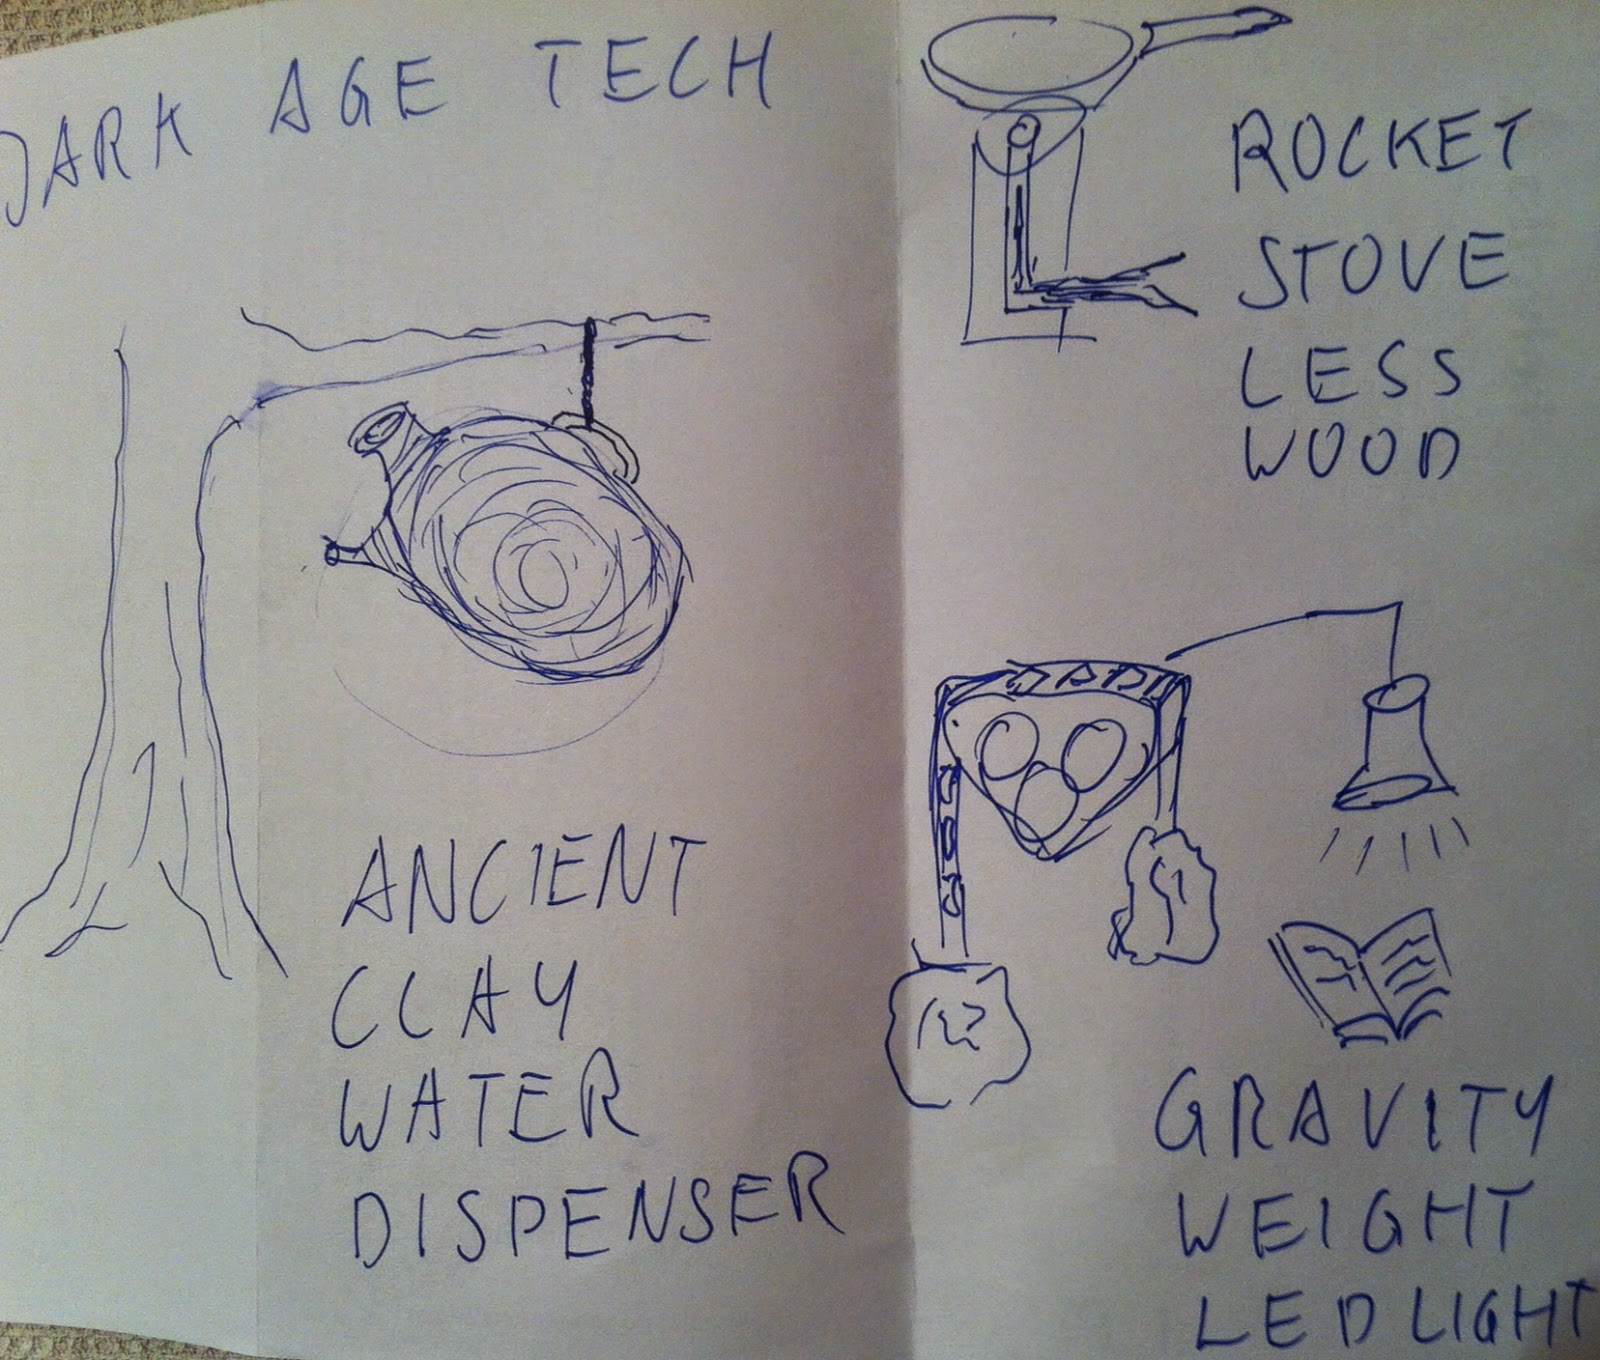 DARK AGE TECH
ANCIENT
CLAY
WATER
DISPENSER
ROCKET
STOVE
LESS
WOOD
GRAVITY
WEIGHT
LED LIGHT